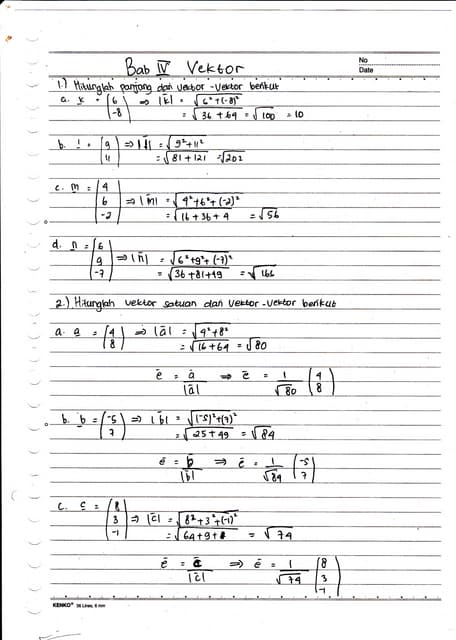 Bab IV Vektor
No
Date
1.) Hitunglah panjang dari vektor-vektor berikut
a. k = (6 -8) ⇒ |k| = √6²+(-8)²
= √36 + 64 = √100 = 10
b. l = (9 11) ⇒ |l| = √9²+11²
= √81 + 121 = √202
c. m = (4 6 -2) ⇒ |m̄| = √4²+6²+(-2)²
= √16+36+4 = √56
d. n = (6 9 -7) ⇒ |n̄| = √6²+9²+(-7)²
= √36+81+49 = √166
2.) Hitunglah vektor satuan dari vektor-vektor berikut
a. a = (4 8) ⇒ |ā| = √4²+8²
= √16+64 = √80
ē = ā/|ā| ⇒ ē = 1/√80 (4 8)
b. b = (-5 7) ⇒ |b̄| = √(-5)²+(7)²
= √25+49 = √84
ē = b̄/|b̄| ⇒ ē = 1/√84 (-5 7)
c. c = (8 3 -1) ⇒ |c̄| = √8²+3²+(-1)²
= √64+9+1 = √74
ē = c̄/|c̄| ⇒ ē = 1/√74 (8 3 -1)
KENKO® 36 Lines, 6 mm